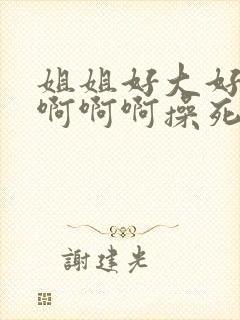 姐姐好大好
啊啊啊操死
謝建光